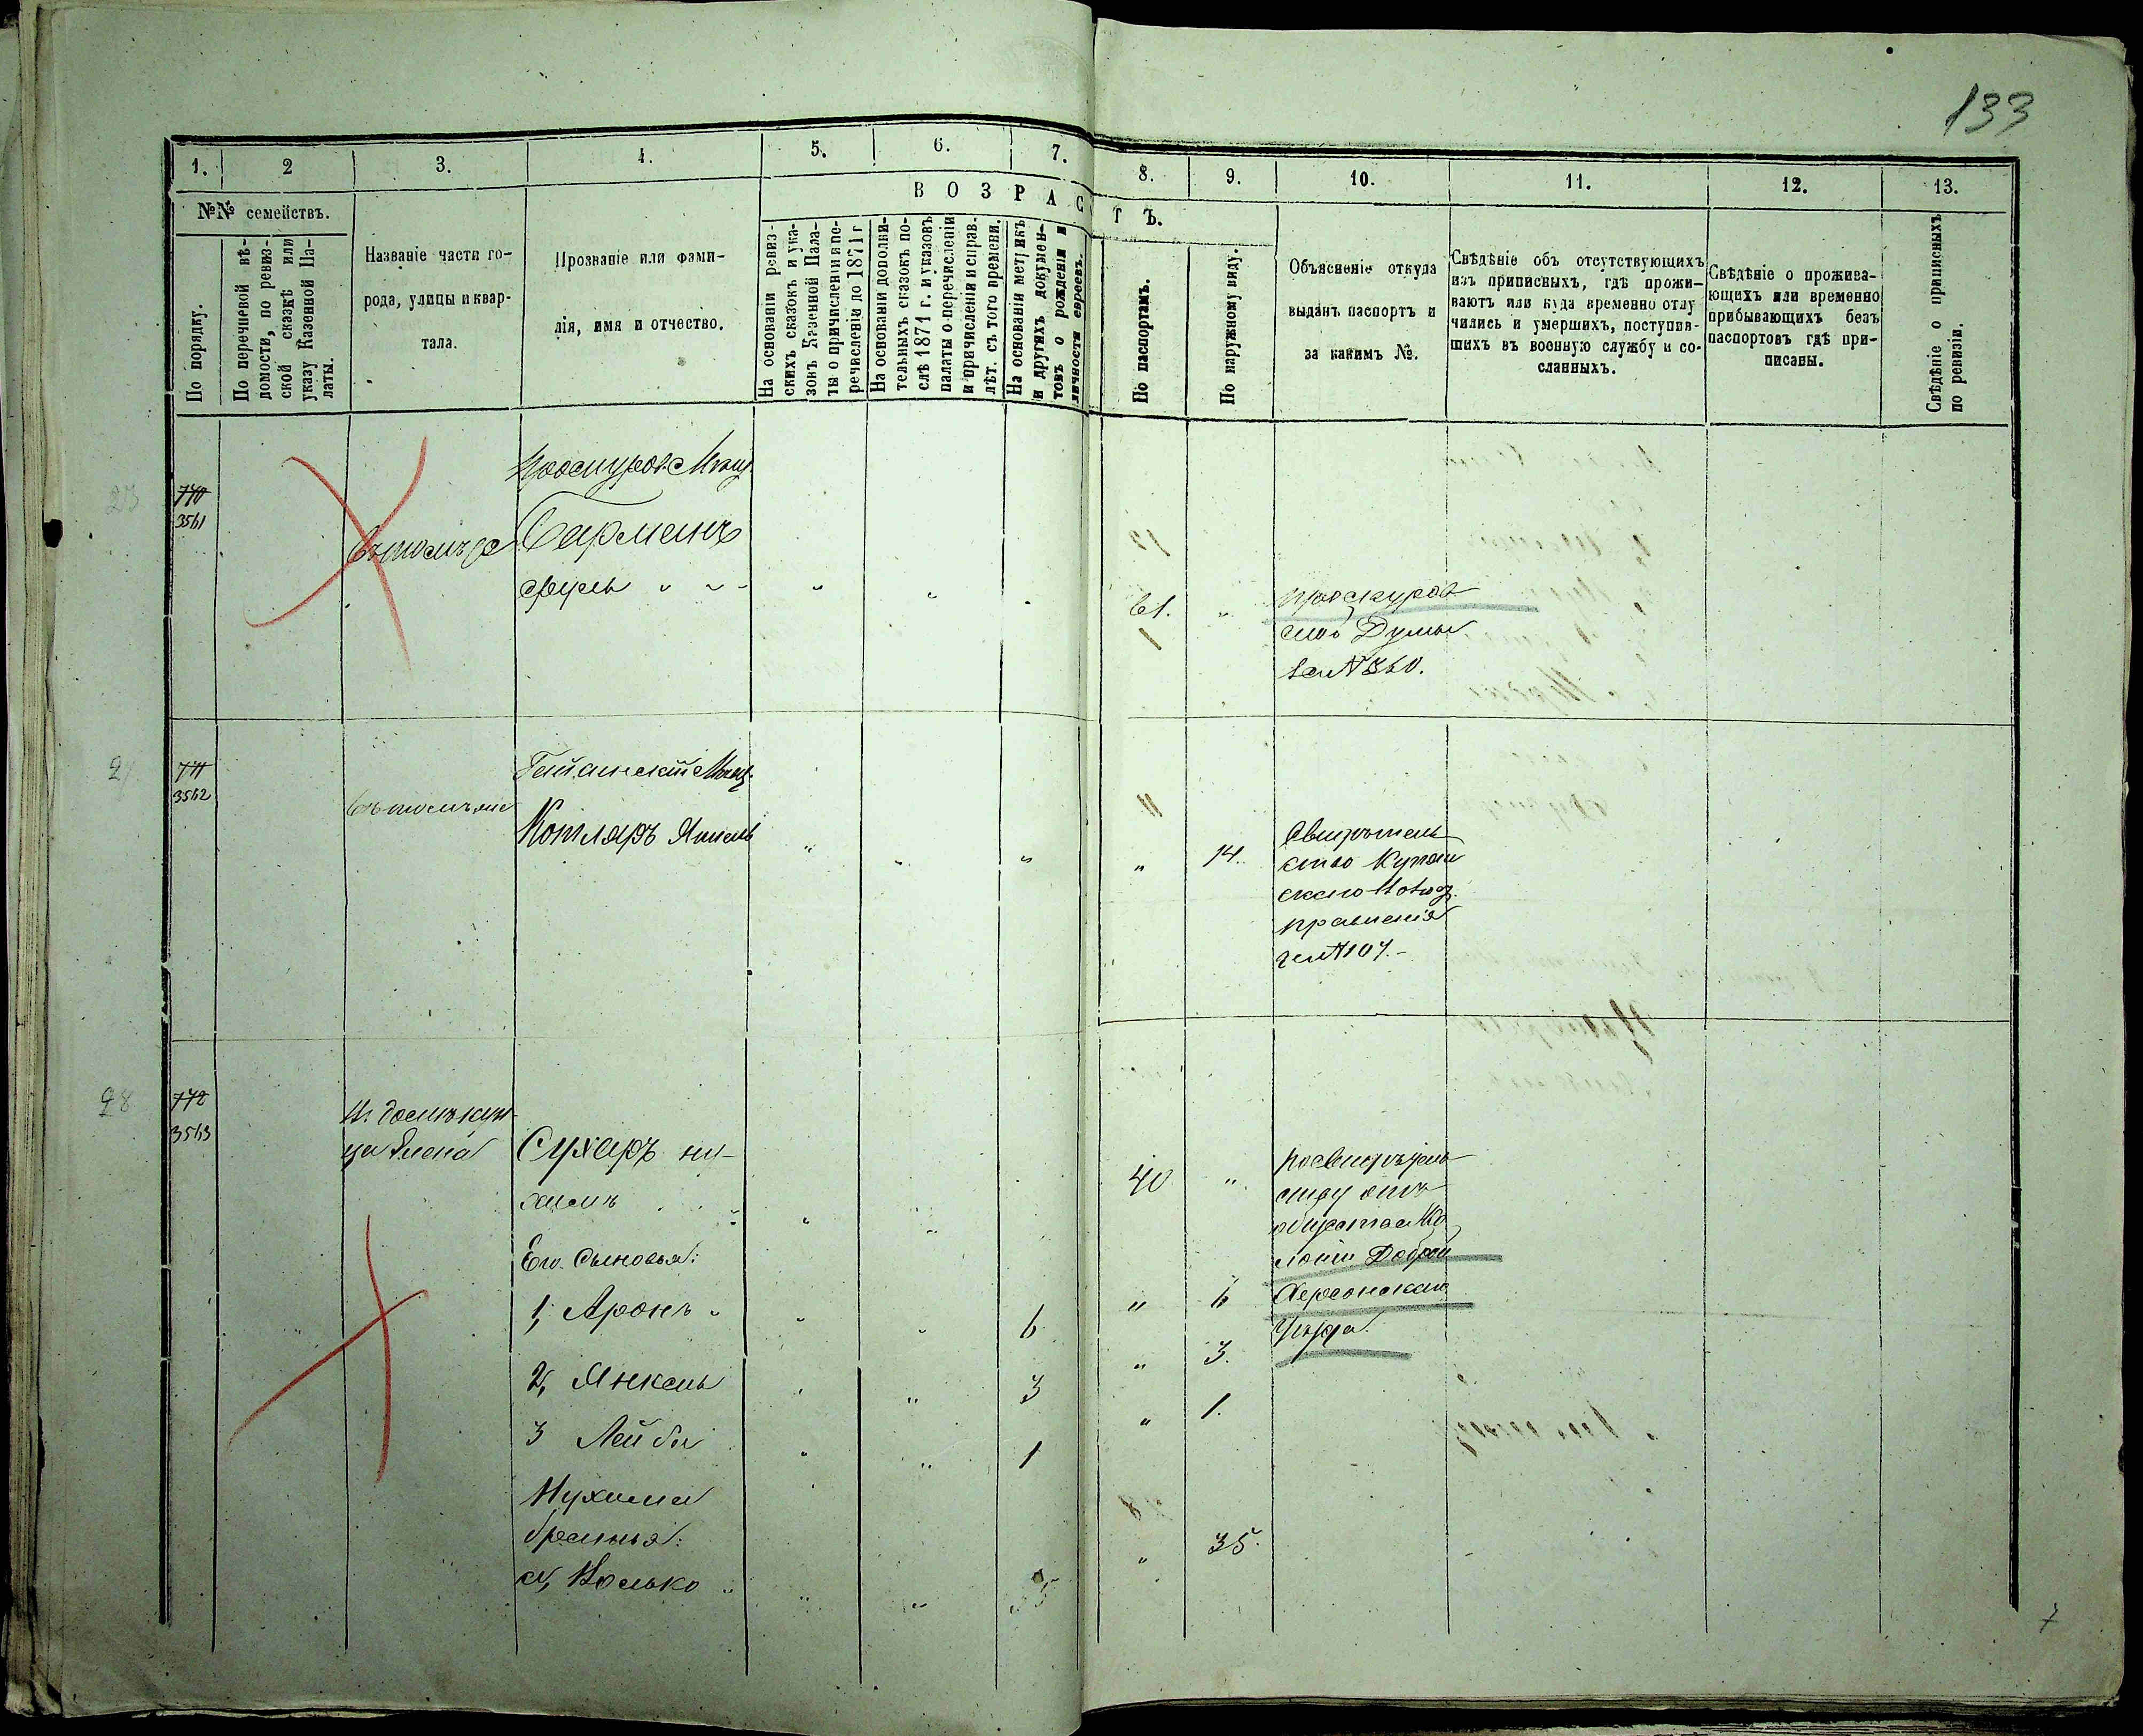 133
1. 2 3. 4. 5. 6. 7. 8. 9. 10. 11. 12. 13.
№№ семействъ.
По порядку.
По перечневой вѣ-
домости, по ревиз-
ской сказкѣ или
указу Казенной Па-
латы.
Названіе части го-
рода, улицы и квар-
тала.
Прозваніе или фами-
лія, имя и отчество.
ВОЗРАСТЪ.
На основаніи ревиз-
скихъ сказокъ и ука-
зовъ Казенной Пала-
ты о причисленіи и пе-
речисленіи до 1871 г
На основаніи дополни-
тельныхъ сказокъ по-
слѣ 1871 г. и указовъ
палаты о перечисленіи
и причисленіи и справ.
лѣт. съ того времени.
На основаніи метрикъ
и другихъ докумен-
товъ о рожденіи и
личности евреевъ.
По паспортамъ.
По наружному виду.
Объясненіе откуда
выданъ паспортъ и
за какимъ №.
Свѣдѣніе объ отсутствующихъ
изъ приписныхъ, гдѣ прожи-
ваютъ или куда временно отлу
чились и умершихъ, поступив-
шихъ въ военную службу и со-
сланныхъ.
Свѣдѣніе о прожива-
ющихъ или временно
прибывающихъ безъ
паспортовъ гдѣ при-
писаны.
Свѣдѣніе о приписныхъ
по ревизіи.
770
3561
Проскуров. Мѣщ.
61.
Проскуров
ской Думы
за № 360.
771
3562
въ томъ же
Мѣщ.
Котляръ
14.
Свидѣтель
ство
правленія
за № 107.-
28
772
3563
Сухаръ Ну-
химъ
40
По свидѣтель
ству отъ
общества Ко
лоніи Доброй
Херсонскаго
Уѣзда.
Его Сыновья:
1, Аронъ 6 6
2, Янкель 3 3.
3 Лейба 1 1.
Нухима
братья:
а, Іосько 35.
7